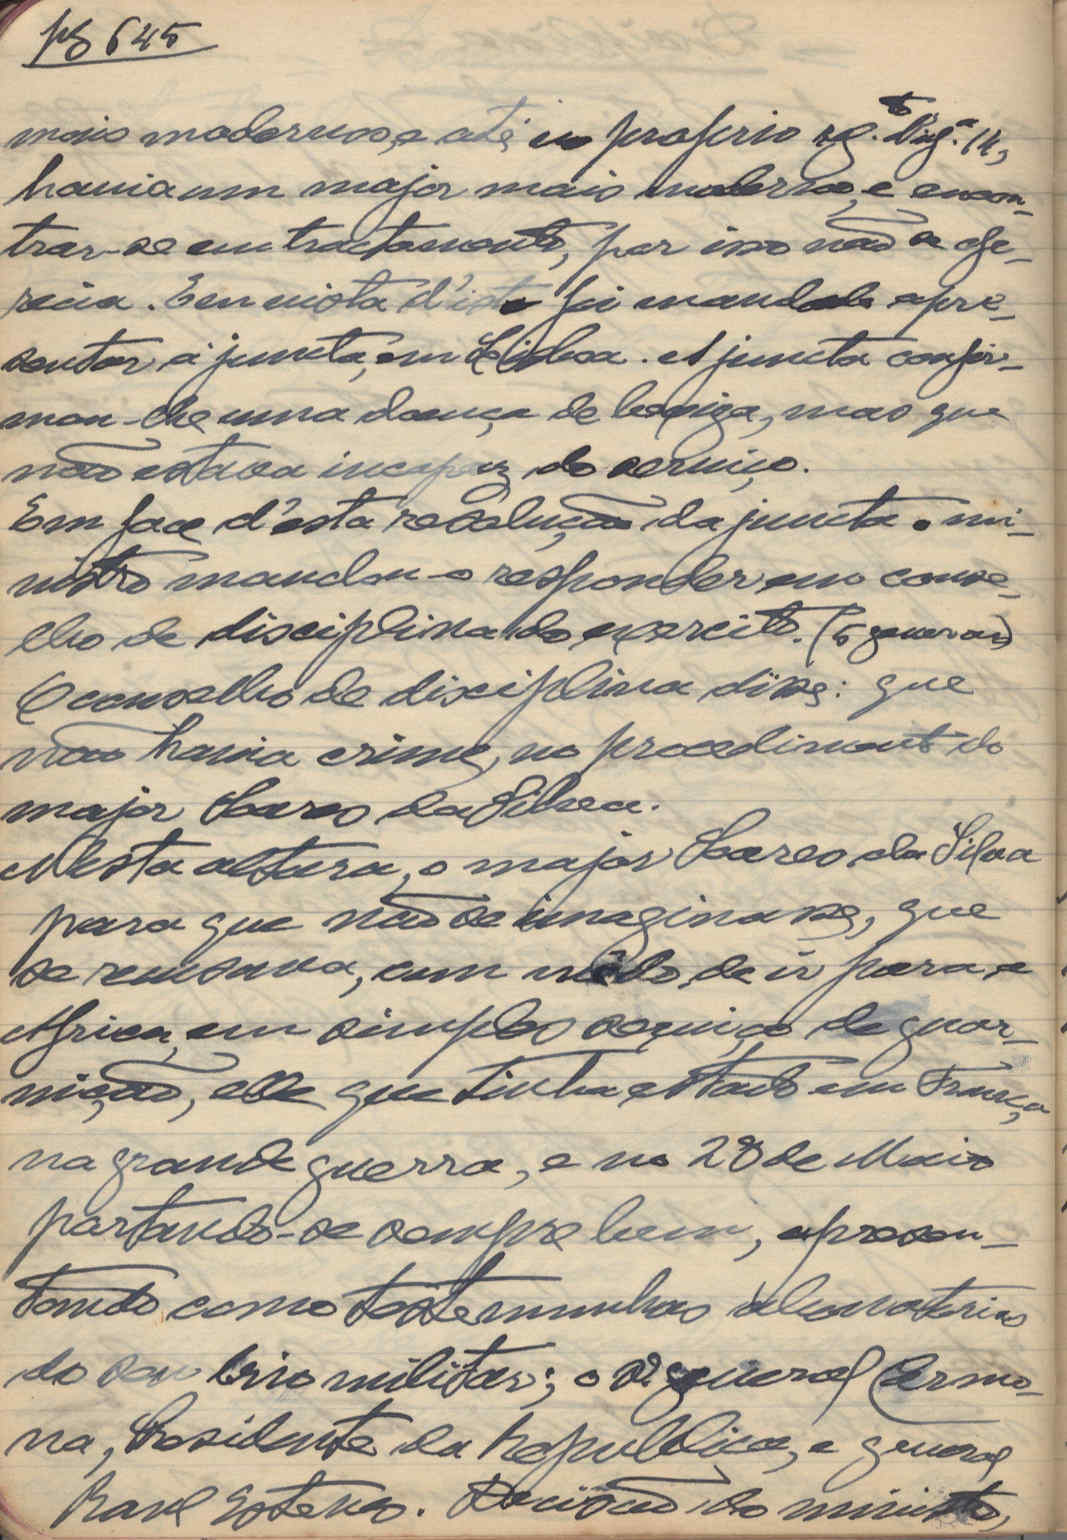 pg 645
mais modernos, e até no proprio rg.to Viag.a 14,
havia um major mais moderno, e encon-
trar-se em tractamento, por isso não se ofe-
recia. Em vista d'isto foi mandado apre-
sentar á juncta, em Lisboa. A juncta confir-
mou-lhe uma doença de bexiga, mas que
não estava incapaz do serviço.
Em face d'esta resolução da juncta o mi-
nistro mandou-o responder em conse-
lho de disciplina do exercito. (5 generaes)
O conselho de disciplina disse: que
não havia crime, no procedimento do
major Soares da Silva.
Nesta altura, o major Soares da Silva
para que não se imaginasse, que
se recusava, com mêdo, de ir para a
Africa, em simples serviço de guar-
nição, elle que tinha estado em França,
na grande guerra, e no 28 de Maio
portando-se sempre bem, apresen-
tando como testemunhas abonatorias
do seu brio militar; o sr. general Carmo-
na, Presidente da Republica, e general
Raul Esteves. Decisão do ministro,